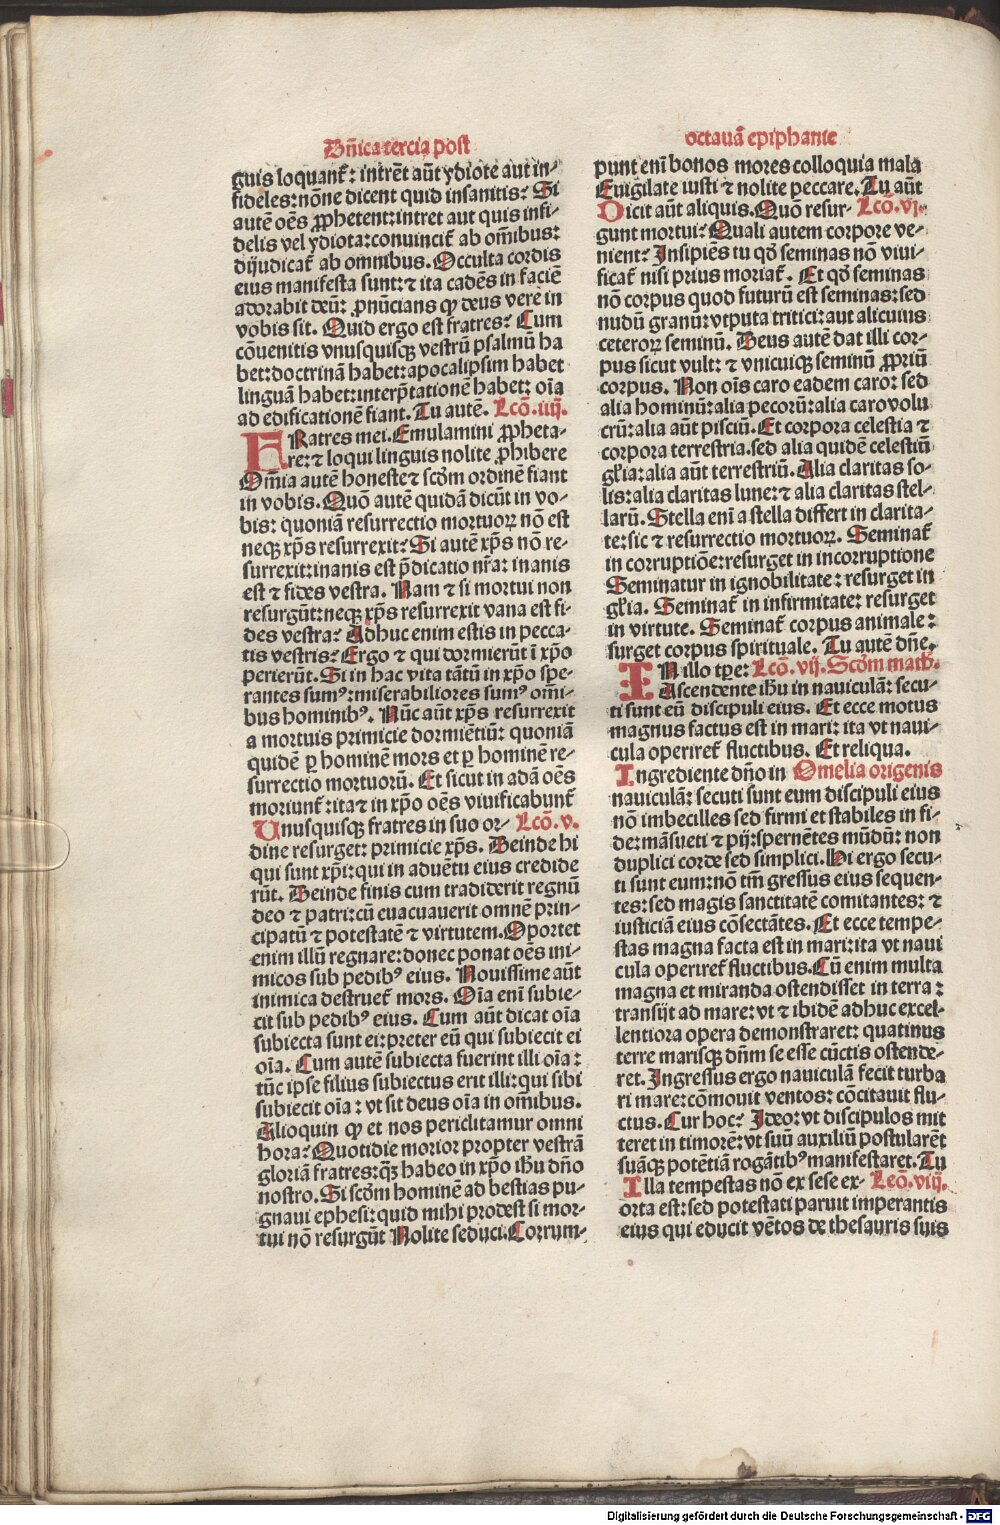 Dn̄ica tercia post
guis loquant᷑: intrēt aūt ydiote aut in-
fideles: nōne dicent quid insanitis: Si
autē oēs ꝓphetent: intret aut quis infi-
delis vel ydiota: conuincit᷑ ab om̄ibus:
dijudicat᷑ ab omnibus. Occulta cordis
eius manifesta sunt: ⁊ ita cadēs in faciē
adorabit deū: ꝓnūcians ꝙ deus vere in
vobis sit. Quid ergo est fratres: Cum
cōuenitis vnusquisqꝫ vestrū psalmū ha
bet: doctrinā habet: apocalipsim habet
linguā habet: interp̄tationē habet: oīa
ad edificationē fiant. Tu autē. Lcō. iiij.
FRatres mei. Emulamini ꝓpheta-
re: ⁊ loqui linguis nolite ꝓhibere
Om̄ia autē honeste ⁊ scd̄m ordinē fiant
in vobis. Quō autē quidā dicūt in vo-
bis: quoniā resurrectio mortuoꝝ nō est
neqꝫ xp̄s resurrexit: Si autē xp̄s nō re-
surrexit: inanis est p̄dicatio nr̄a: inanis
est ⁊ fides vestra. Nam ⁊ si mortui non
resurgūt: neqꝫ xp̄s resurrexit vana est fi-
des vestra: Adhuc enim estis in pecca-
tis vestris: Ergo ⁊ qui dormierūt ī xp̄o
perierūt. Si in hac vita tātū in xp̄o spe-
rantes sumꝰ: miserabiliores sumꝰ om̄i-
bus hominibꝰ. Nūc aūt xp̄s resurrexit
a mortuis primicie dormiētiū: quoniā
quidē ꝑ hominē mors et ꝑ hominē re-
surrectio mortuorū. Et sicut in adā oēs
moriunt᷑: ita ⁊ in xp̄o oēs viuificabunt᷑
Vnusquisqꝫ fratres in suo or- Lcō. v.
dine resurget: primicie xp̄s. Deinde hi
qui sunt xp̄i: qui in aduētu eius credide
rūt. Deinde finis cum tradiderit regnū
deo ⁊ patri: cū euacuauerit omnē prin-
cipatū ⁊ potestatē ⁊ virtutem. Oportet
enim illū regnare: donec ponat oēs ini-
micos sub pedibꝰ eius. Nouissime aūt
inimica destruet᷑ mors. Oīa enī subie-
cit sub pedibꝰ eius. Cum aūt dicat oīa
subiecta sunt ei: preter eū qui subiecit ei
oīa. Cum autē subiecta fuerint illi oīa:
tūc ipse filius subiectus erit illi: qui sibi
subiecit oīa: vt sit deus oīa in om̄ibus.
Alioquin ꝙ et nos periclitamur omni
hora: Quotidie morior propter vestrā
gloriā fratres: q̄ꝫ habeo in xp̄o ihū dn̄o
nostro. Si scd̄m hominē ad bestias pu-
gnaui ephesi: quid mihi prodest si mor-
tui nō resurgūt Nolite seduci. Corrum-
octauā epiphanie
punt enī bonos mores colloquia mala
Euigilate iusti ⁊ nolite peccare. Tu aūt
Dicit aūt aliquis. Quō resur- Lcō. vj.
gunt mortui: Quali autem corpore ve-
nient: Insipiēs tu qd̄ seminas nō viui-
ficat᷑ nisi prius moriat᷑. Et qd̄ seminas
nō corpus quod futurū est seminas: sed
nudū granū: vtputa tritici: aut alicuius
ceteroꝝ seminū. Deus autē dat illi cor-
pus sicut vult: ⁊ vnicuiqꝫ seminū ꝓpriū
corpus. Non oīs caro eadem caro: sed
alia hominū: alia pecorū: alia caro volu
crū: alia aūt pisciū. Et corpora celestia ⁊
corpora terrestria. sed alia quidē celestiū
gl̄ia: alia aūt terrestriū. Alia claritas so-
lis: alia claritas lune: ⁊ alia claritas stel-
larū. Stella enī a stella differt in clarita-
te: sic ⁊ resurrectio mortuoꝝ. Seminat᷑
in corruptiōe: resurget in incorruptione
Seminatur in ignobilitate: resurget in
gl̄ia. Seminat᷑ in infirmitate: resurget
in virtute. Seminat᷑ corpus animale:
surget corpus spirituale. Tu autē dn̄e.
IN illo tꝑe: Lcō. vij. Scd̄m math̄.
Ascendente ihū in nauiculā: secu-
ti sunt eū discipuli eius. Et ecce motus
magnus factus est in mari: ita vt naui-
cula operiret᷑ fluctibus. Et reliqua.
Ingrediente dn̄o in Omelia origenis
nauiculā: secuti sunt eum discipuli eius
nō imbecilles sed firmi et stabiles in fi-
de: māsueti ⁊ pij: spernētes mūdū: non
duplici corde sed simplici. Hi ergo secu-
ti sunt eum: nō tm̄ gressus eius sequen-
tes: sed magis sanctitatē comitantes: ⁊
iusticiā eius cōsectātes. Et ecce tempe-
stas magna facta est in mari: ita vt naui
cula operiret᷑ fluctibus. Cū enim multa
magna et miranda ostendisset in terra:
transijt ad mare: vt ⁊ ibidē adhuc excel-
lentiora opera demonstraret: quatinus
terre marisqꝫ dn̄m se esse cūctis ostende-
ret. Ingressus ergo nauiculā fecit turba
ri mare: cōmouit ventos: cōcitauit flu-
ctus. Cur hoc: Ideo: vt discipulos mit
teret in timorē: vt suū auxiliū postularēt
suāqꝫ potētiā rogātibꝰ manifestaret. Tu
Illa tempestas nō ex sese ex- Lcō. viij.
orta est: sed potestati paruit imperantis
eius qui educit vētos de thesauris suis
Digitalisierung gefördert durch die Deutsche Forschungsgemeinschaft - DFG